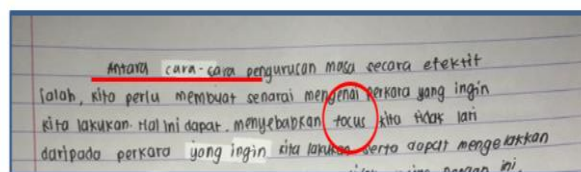 Antara cara-cara pengurusan masa secara efektif
ialah, kita perlu membuat senarai mengenai perkara yang ingin
kita lakukan. Hal ini dapat menyebabkan focus kita tidak lari
daripada perkara yang ingin kita lakukan serta dapat mengelakkan
ini,